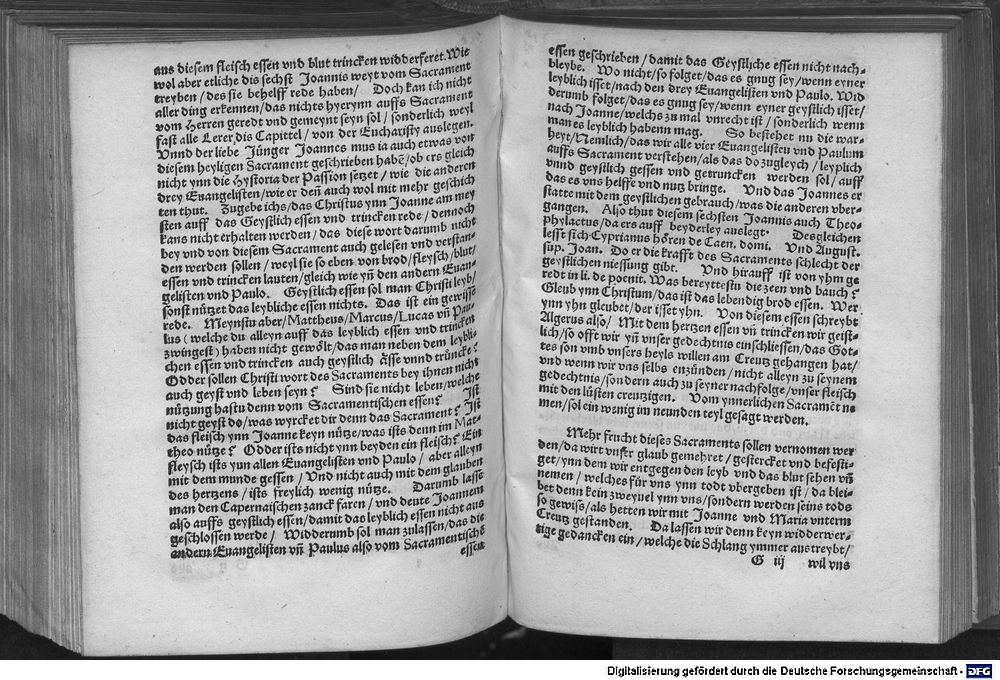 aus diesem fleisch essen vnd blut trincken widderferet. Wie
wol aber etliche dis sechst Joannis weyt vom Sacrament
treyben / des sie behelff rede haben / Doch kan ich nicht
aller ding erkennen / das nichts hyerynn auffs Sacrament
vom Herren geredt vnd gemeynt seyn sol / sonderlich weyl
fast alle Lerer dis Capittel / von der Eucharisty auslegen.
Vnnd der liebe Jünger Joannes mus ia auch etwas von
diesem heyligen Sacrament geschrieben habē / ob ers gleich
nicht ynn die Hystoria der Passion setzet / wie die anderen
drey Euangelisten / wie er deñ auch wol mit mehr geschich
ten thut. Zugebe ichs / das Christus ynn Joanne am mey
sten auff das Geystlich essen vnd trincken rede / dennoch
kans nicht erhalten werden / das diese wort darumb nicht
bey vnd von diesem Sacrament auch gelesen vnd verstan-
den werden sollen / weyl sie so eben von brod / fleysch / blut /
essen vnd trincken lauten / gleich wie yñ den andern Euan-
gelisten vnd Paulo. Geystlich essen sol man Christi leyb /
sonst nützet das leybliche essen nichts. Das ist ein gewisse
rede. Meynstu aber / Mattheus / Marcus / Lucas vñ Pau-
lus (welche du alleyn auff das leyblich essen vnd trincken
zwingest) haben nicht gewölt / das man neben dem leybli-
chen essen vnd trincken auch geystlich ässe vnnd trüncke?
Odder sollen Christi wort des Sacraments bey ihnen nicht
auch geyst vnd leben seyn? Sind sie nicht leben / welche
nützung hastu denn vom Sacramentischen essen? Ist
nicht geyst do / was wyrcket dir denn das Sacrament? Ist
das fleisch ynn Joanne keyn nütze / was ists denn im Mat-
theo nütze? Odder ists nicht ynn beyden ein fleisch? Ein
fleysch ists yun allen Euangelisten vnd Paulo / aber alleyn
mit dem munde gessen / Vnd nicht auch mit dem glauben
des hertzens / ists freylich wenig nütze. Darumb lasse
man den Capernaischen zanck faren / vnd deute Joannem
also auffs geystlich essen / damit das leyblich essen nicht aus
geschlossen werde / Widderumb sol man zulassen / das die
andern Euangelisten vñ Paulus also vom Sacramentischē
essen
essen geschrieben / damit das Geystliche essen nicht nach-
bleybe. Wo nicht / so folget / das es gnug sey / wenn eyner
leyblich isset / nach den drey Euangelisten vnd Paulo. Wid
derumb folget / das es gnug sey / wenn eyner geystlich isset /
nach Joanne / welchs zu mal vnrecht ist / sonderlich wenn
man es leyblich habenn mag. So bestehet nu die war-
heyt / Nemlich / das wir alle vier Euangelisten vnd Paulum
auffs Sacrament verstehen / als das do zugleych / leyplich
vnnd geystlich gessen vnd getruncken werden sol / auff
das es vns helffe vnd nutz bringe. Vnd das Joannes er
statte mit dem geystlichen gebrauch / was die anderen vber-
gangen. Also thut diesem sechsten Joannis auch Theo-
phylactus / da ers auff beyderley auslegt. Desgleichen
lesst sich Cyprianus hören de Caen. domi. Vnd August.
sup. Joan. Do er die krafft des Sacraments schlecht der
geystlichen niessung gibt. Vnd hirauff ist von yhm ge
redt in li. de poenit. Was bereyttestu die zeen vnd bauch?
Gleub ynn Christum / das ist das lebendig brod essen. Wer
ynn yhn gleubet / der isset yhn. Von diesem essen schreybt
Algerus also / Mit dem hertzen essen vñ trincken wir geist-
lich / so offt wir yñ vnser gedechtnis einschliessen / das Got-
tes son vmb vnsers heyls willen am Creutz gehangen hat /
vnd wenn wir vns selbs enzünden / nicht alleyn zu seynem
gedechtnis / sondern auch zu seyner nachfolge / vnser fleisch
mit den lüsten creutzigen. Vom ynnerlichen Sacramēt ne
men / sol ein wenig im neunden teyl gesagt werden.
Mehr frucht dieses Sacraments sollen vernomen wer
den / da wirt vnser glaub gemehret / gestercket vnd befesti-
get / ynn dem wir entgegen den leyb vnd das blut sehen vñ
nemen / welches für vns ynn todt vbergeben ist / da blei-
bet denn kein zweyuel ynn vns / sondern werden seins tods
so gewiss / als hetten wir mit Joanne vnd Maria vnterm
Creutz gestanden. Da lassen wir denn keyn widderwer-
tige gedancken ein / welche die Schlang ymmer austreybt /
G iij wil vns
Digitalisierung gefördert durch die Deutsche Forschungsgemeinschaft - DFG